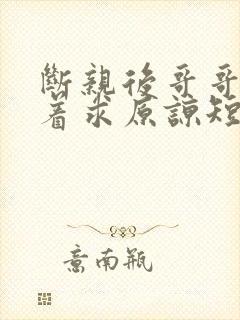 斷親後哥哥
着求原諒短
意南瓶